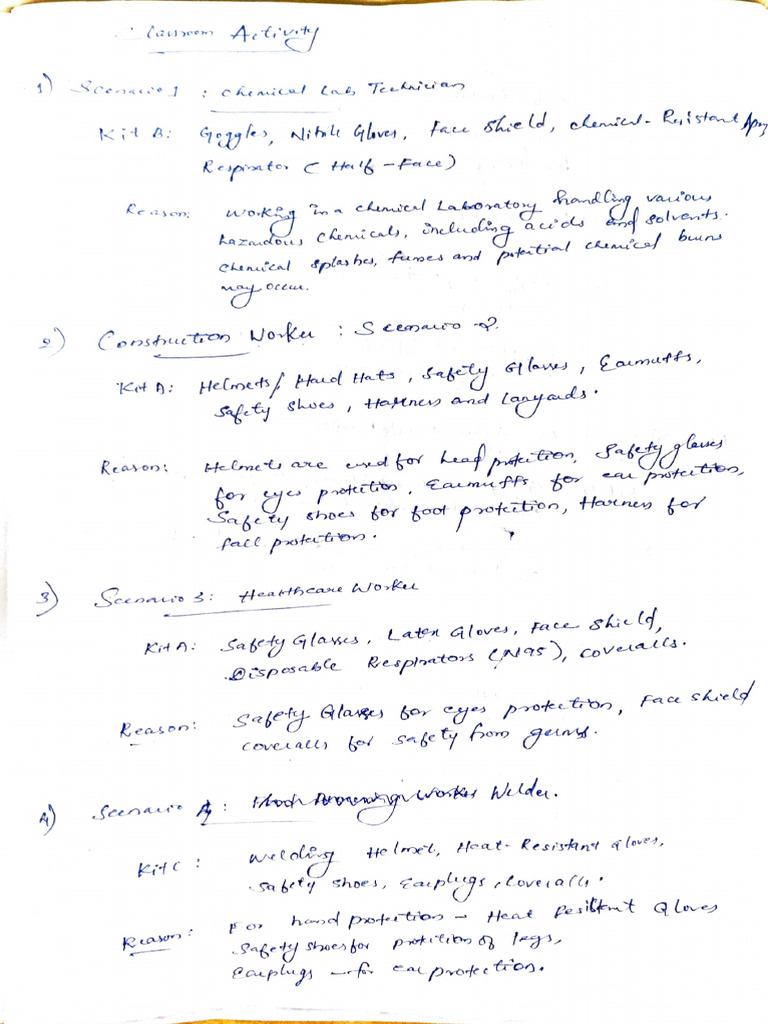 Classroom Activity
1) Scenario 1 : Chemical Lab Technician
Kit B: Goggles, Nitrile Gloves, Face Shield, chemical-Resistant Apron
Respirator (Half-Face)
Reason: Working in a chemical Laboratory handling various
hazardous chemicals, including acids and solvents.
chemical splashes, fumes and potential chemical burns
may occur.
2) Construction Worker : Scenario 2.
Kit A: Helmets/ Hard Hats, Safety Glasses, Earmuffs,
Safety Shoes, Harness and Lanyards.
Reason: Helmets are used for head protection, Safety glasses
for eyes protection, Earmuffs for ear protection,
Safety shoes for foot protection, Harness for
fall protection.
3) Scenario 3: Healthcare Worker
Kit A: Safety Glasses, Latex Gloves, Face Shield,
Disposable Respirators (N95), coveralls.
Reason: Safety Glasses for eyes protection, Face shield
coveralls for safety from germs.
4) Scenario 4: Welder.
Kit C: Welding Helmet, Heat-Resistant Gloves,
Safety shoes, Earplugs, Coveralls.
Reason: For hand protection - Heat Resistant Gloves
Safety shoes for protection of legs,
Earplugs - for ear protection.